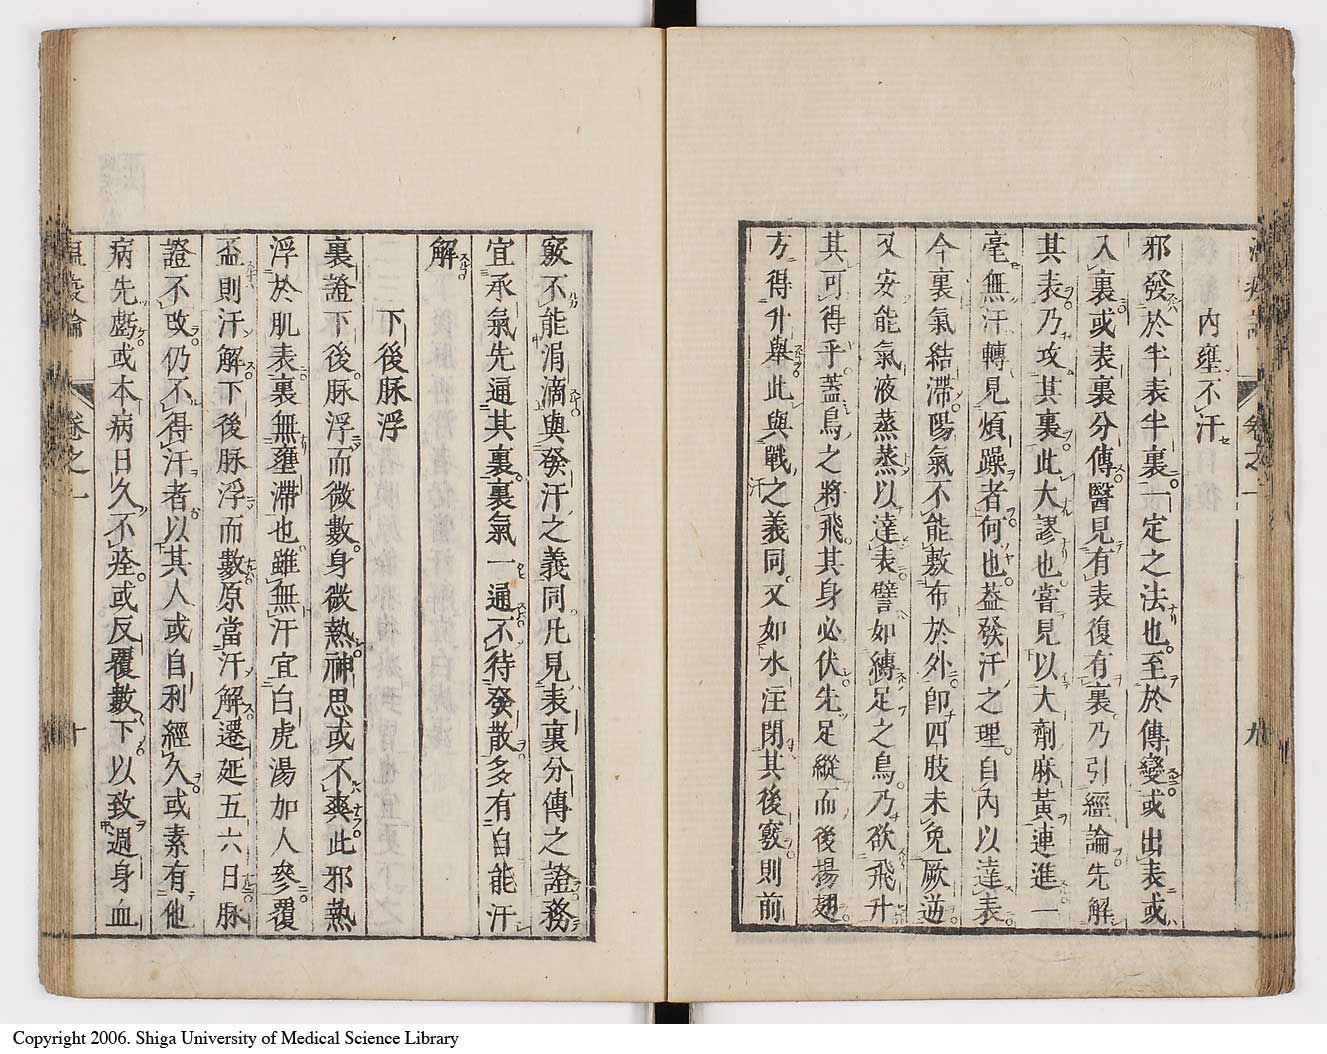 溫疫論 卷之一 九
內壅不汗
邪發於半表半裏一定之法也至於傳變或出表或
入裏或表裏分傳醫見有表復有裏乃引經論先解
其表乃攻其裏此大謬也嘗見以大劑麻黃連進一
毫無汗轉見煩躁者何也葢發汗之理自內以達表
今裏氣結滯陽氣不能敷布於外卽四肢未免厥逆
又安能氣液蒸蒸以達表譬如縛足之鳥乃欲飛升
其可得乎蓋鳥之將飛其身必伏先足縱而後揚翅
方得升舉此與戰汗之義同又如水注閉其後竅則前
竅不能涓滴與發汗之義同凡見表裏分傳之證務
宜承氣先通其裏裏氣一通不待發散多有自能汗
解
下後脉浮
裏證下後脉浮而微數身微熱神思或不爽此邪熱
浮於肌表裏無壅滯也雖無汗宜白虎湯加人參覆
盃則汗解下後脉浮而數原當汗解遷延五六日脉
證不改仍不得汗者以其人或自利經久或素有他
病先虧或本病日久不痊或反覆數下以致週身血
溫疫論 卷之一 十
Copyright 2006. Shiga University of Medical Science Library